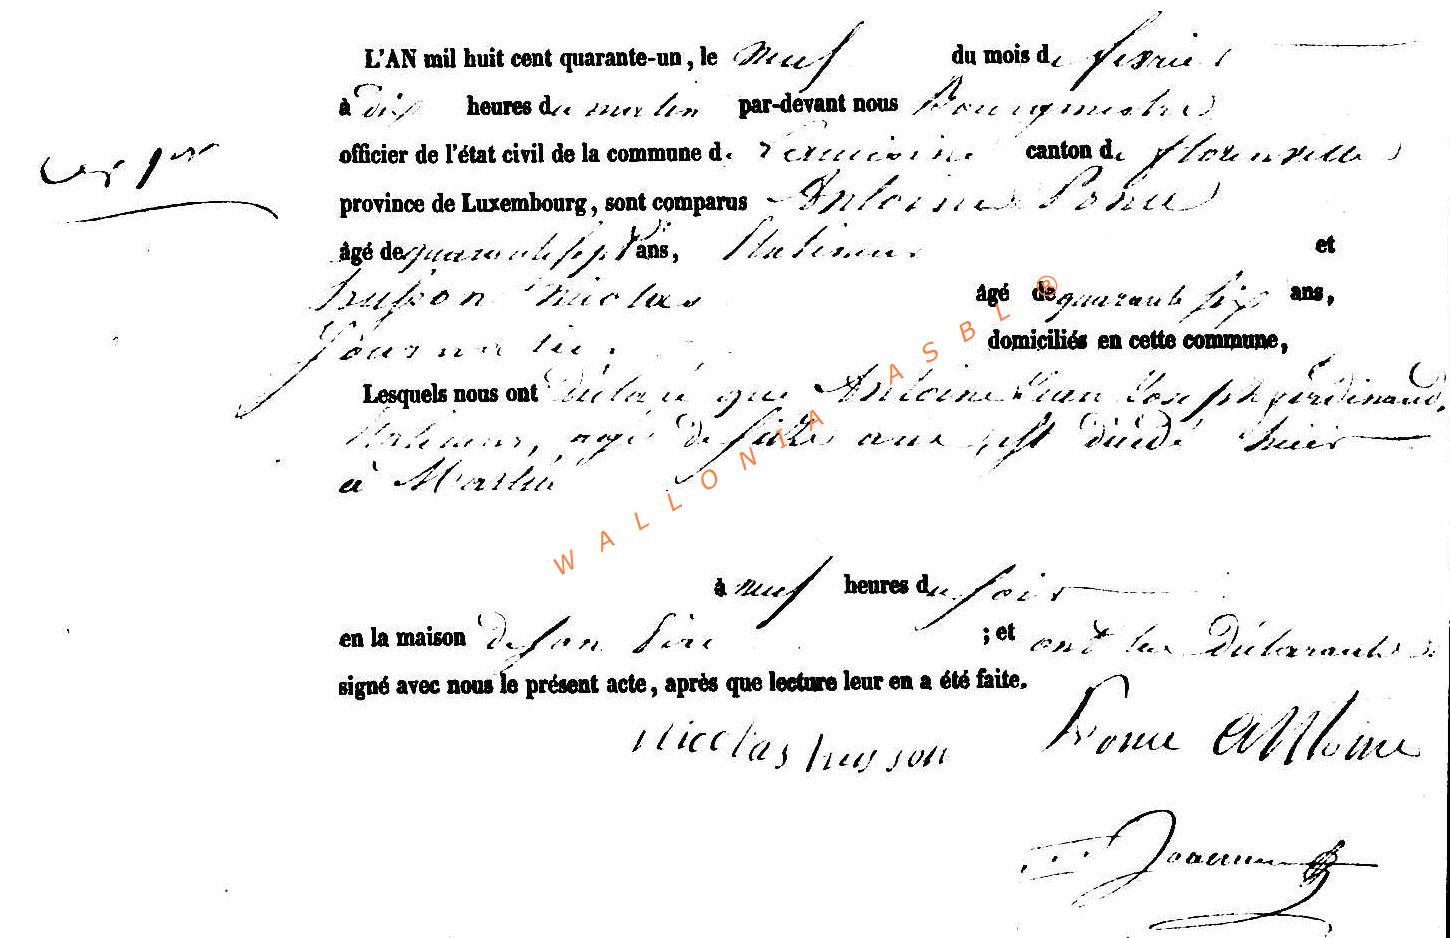 L'AN mil huit cent quarante-un, le neuf du mois de fevrier
à dix heures du matin par-devant nous Bourgmestre
officier de l'état civil de la commune de canton de florenville
province de Luxembourg, sont comparus Antoine Ponce
âgé de quarante sept ans, et
husson Nicolas âgé de quarante six ans,
Journalier domiciliés en cette commune,
Lesquels nous ont déclaré que Antoine Jean Joseph ferdinand
agé de ans est décédé hier
à Martué
à neuf heures du soir
en la maison de son Père ; et ont les déclarants
signé avec nous le présent acte, après que lecture leur en a été faite.
Nicolas husson Ponce Antoine
WALLONIA ASBL ®